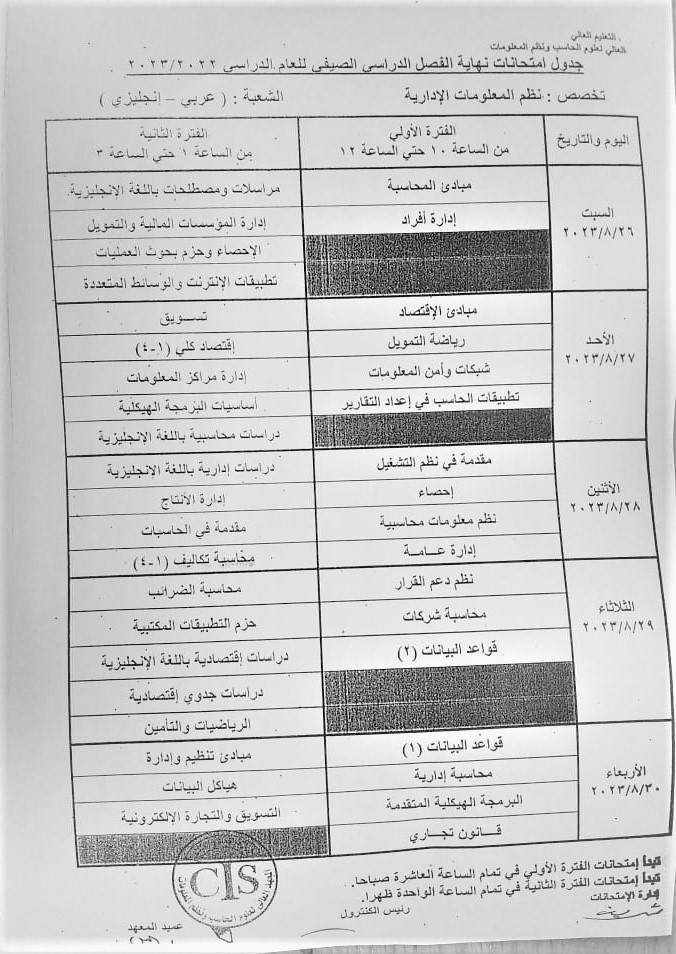 التعليم العالي
العالي لعلوم الحاسب ونظم المعلومات
جدول امتحانات نهاية الفصل الدراسي الصيفي للعام الدراسي ٢٠٢٣/٢٠٢٢
تخصص : نظم المعلومات الإدارية الشعبة : ( عربي – إنجليزي )
اليوم والتاريخ
الفترة الأولي
من الساعة ١٠ حتي الساعة ١٢
الفترة الثانية
من الساعة ١ حتي الساعة ٣
السبت
٢٠٢٣/٨/٢٦
مبادئ المحاسبة
مراسلات ومصطلحات باللغة الإنجليزية
إدارة أفراد
إدارة المؤسسات المالية والتمويل
الإحصاء وحزم بحوث العمليات
تطبيقات الإنترنت والوسائط المتعددة
الأحد
٢٠٢٣/٨/٢٧
مبادئ الإقتصاد
تسـويق
رياضة التمويل
إقتصاد كلي (١-٤)
شبكات وأمن المعلومات
إدارة مراكز المعلومات
تطبيقات الحاسب في إعداد التقارير
أساسيات البرمجة الهيكلية
دراسات محاسبية باللغة الإنجليزية
الأثنين
٢٠٢٣/٨/٢٨
مقدمة في نظم التشغيل
دراسات إدارية باللغة الإنجليزية
إحصاء
إدارة الأنتاج
نظم معلومات محاسبية
مقدمة في الحاسبات
إدارة عـــامـة
محاسبة تكاليف (١-٤)
الثلاثاء
٢٠٢٣/٨/٢٩
نظم دعم القرار
محاسبة الضرائب
محاسبة شركات
حزم التطبيقات المكتبية
قواعد البيانات (٢)
دراسات إقتصادية باللغة الإنجليزية
دراسات جدوي إقتصادية
الرياضيات والتأمين
الأربعاء
٢٠٢٣/٨/٣٠
قواعد البيانات (١)
مبادئ تنظيم وإدارة
محاسبة إدارية
هياكل البيانات
البرمجة الهيكلية المتقدمة
التسويق والتجارة الالكترونية
قـــانون تجـاري
تبدأ إمتحانات الفترة الأولي في تمام الساعة العاشرة صباحا.
تبدأ إمتحانات الفترة الثانية في تمام الساعة الواحدة ظهرا.
إدارة الإمتحانات
رئيس الكنترول
عميد المعهد
CIS
المعهد العالي لعلوم الحاسب ونظم المعلومات